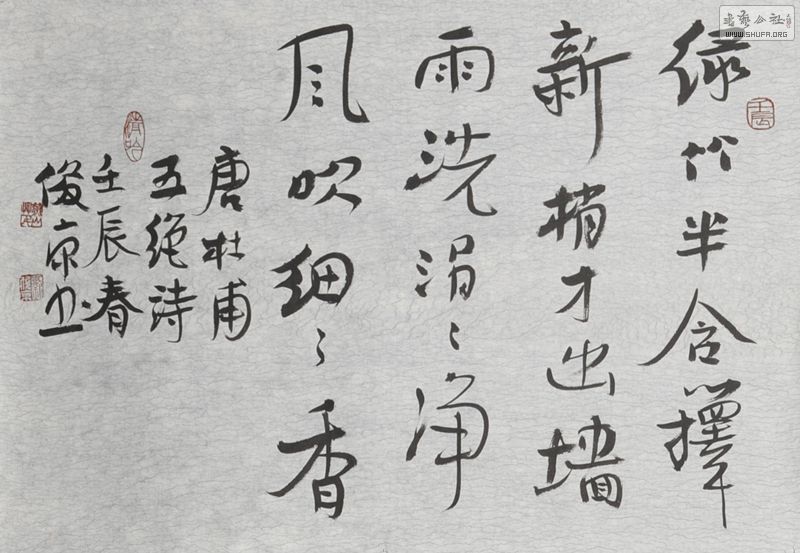 绿竹半含箨
新梢才出墙
雨洗涓〻净
风吹细〻香
唐杜甫
五绝诗
壬辰春
俊京书
书法公社
WWW.SHUFA.ORG
壬辰